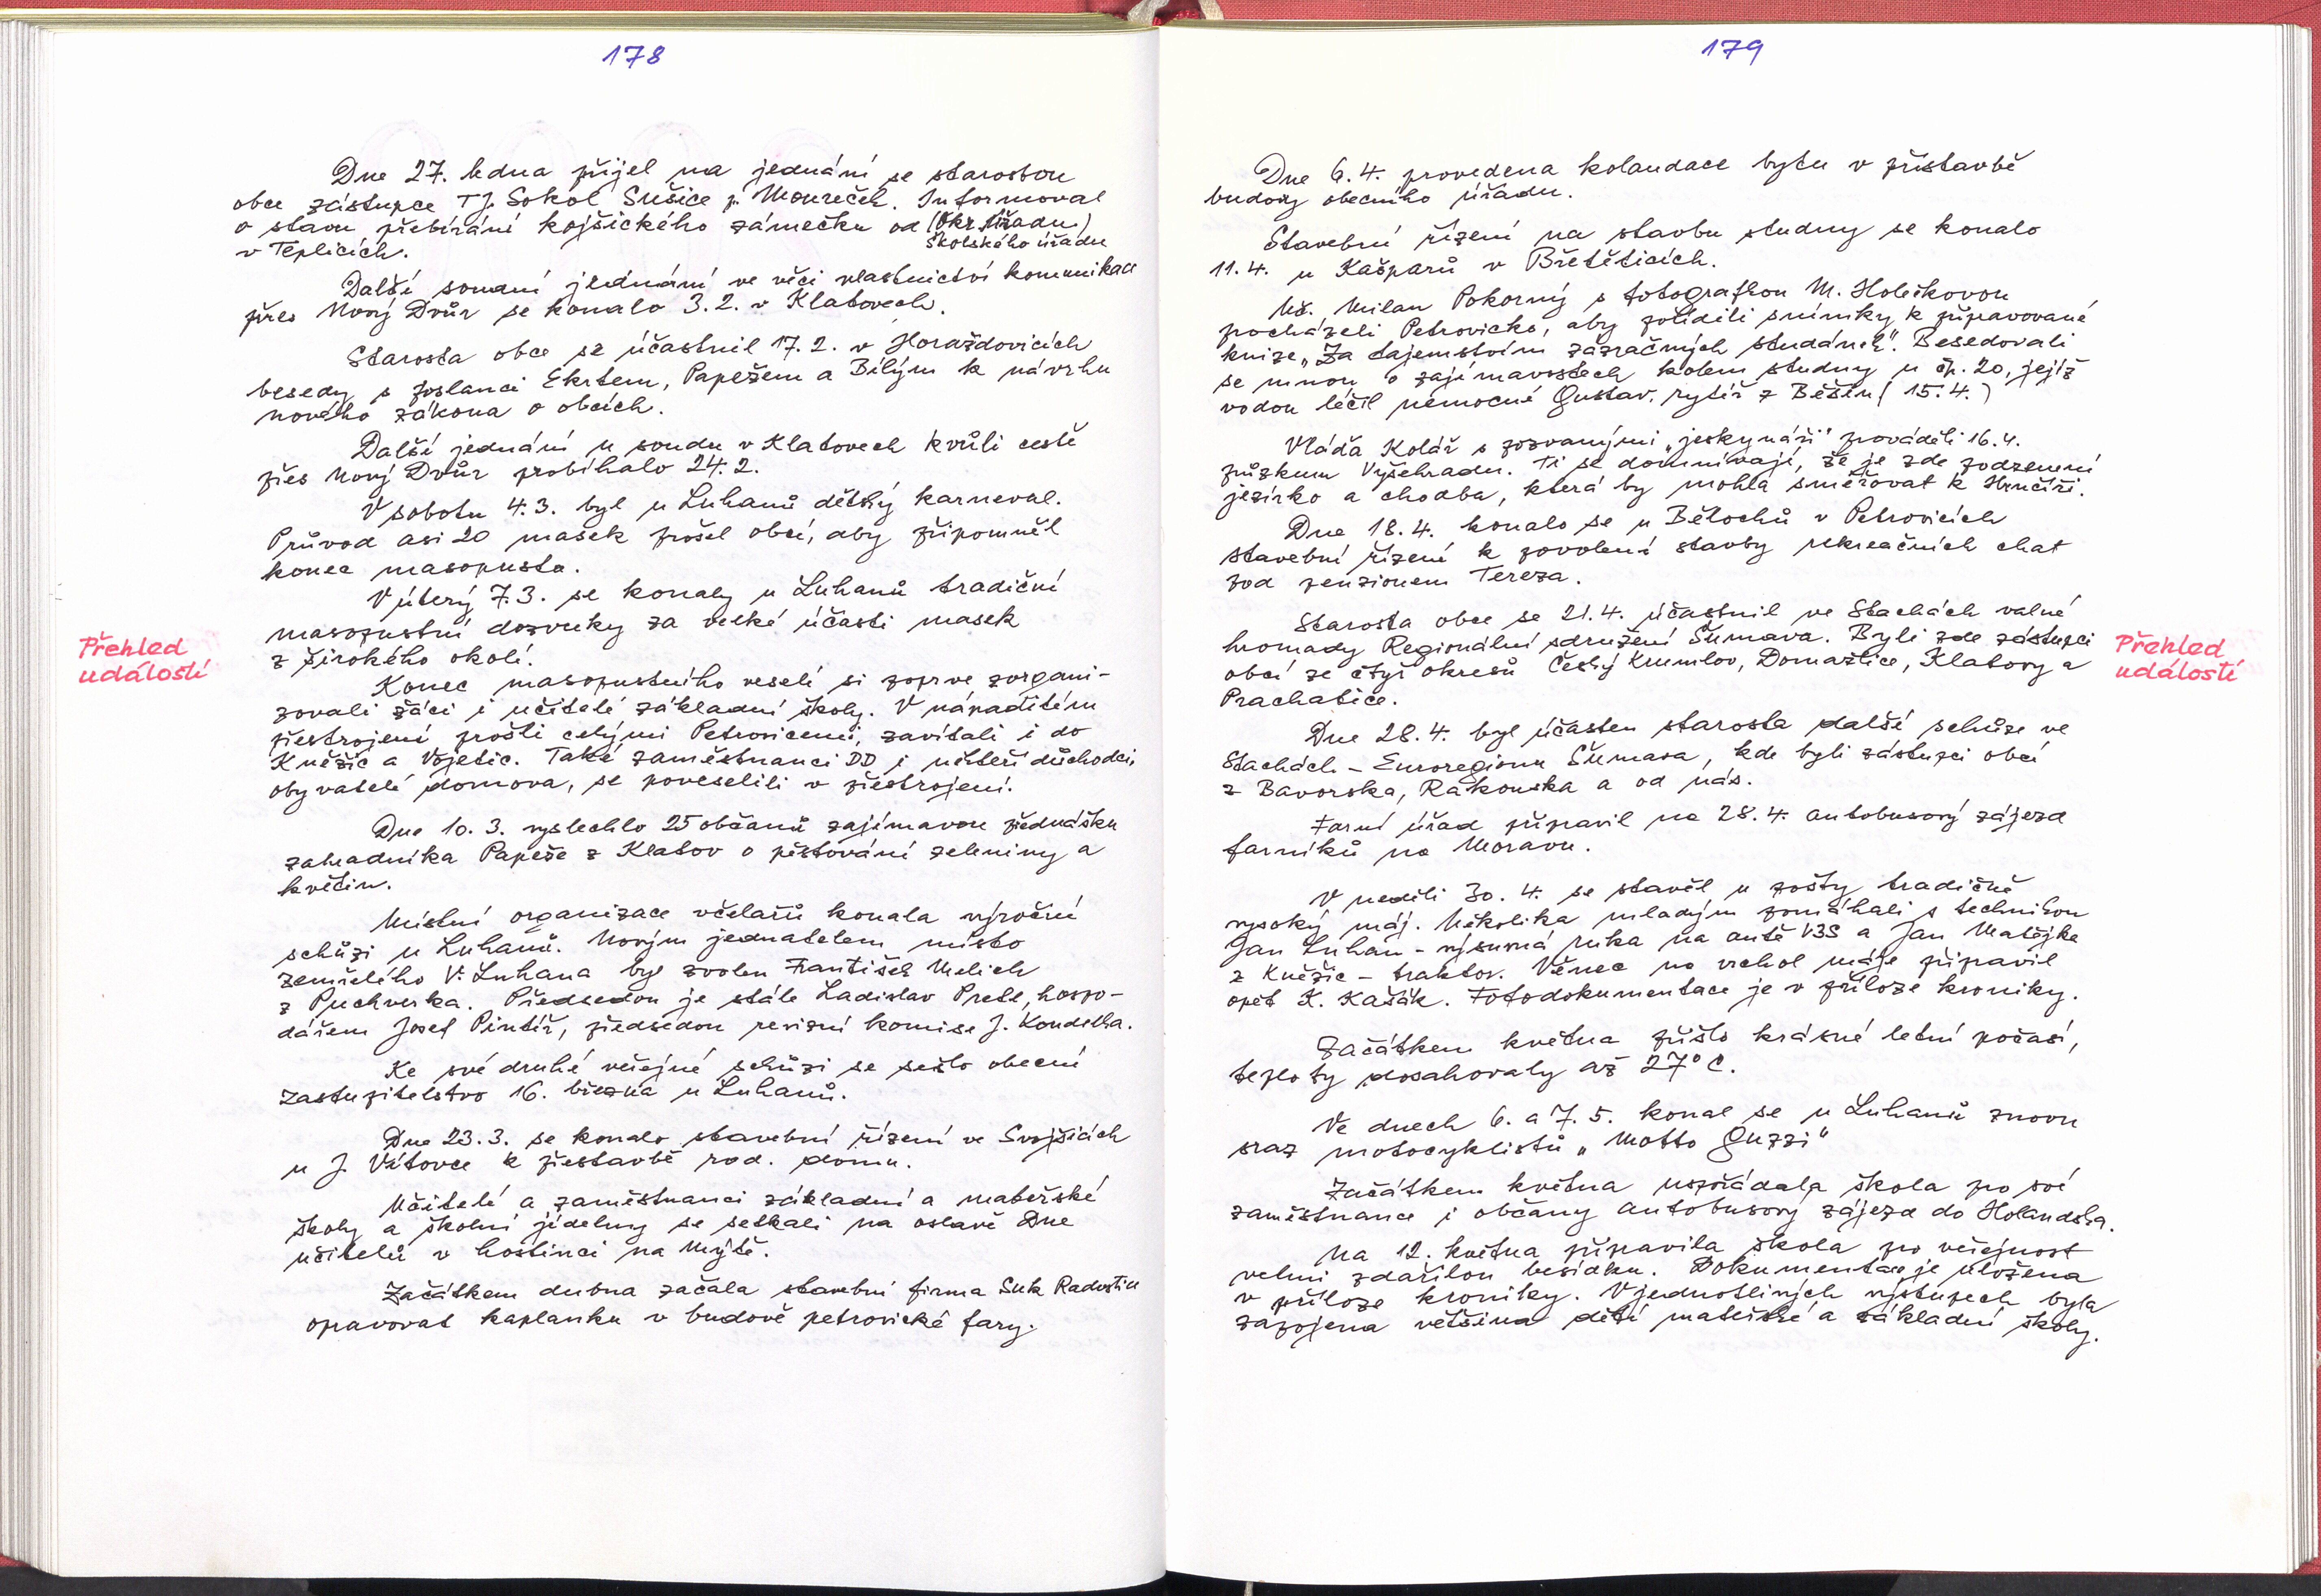 178
Dne 27. ledna přijel na jednání se starostou
obce zástupce TJ. Sokol Sušice p. Moureček. Informoval
o stavu přebírání kojšického zámečku od (Okr. úřadu)
Školského úřadu
v Teplicích.
Další soudní jednání ve věci vlastnictví komunikace
přes Nový Dvůr se konalo 3.2. v Klatovech.
Starosta obce se účastnil 17.2. v Horažďovicích
besedy s poslanci Ekrtem, Papežem a Bílým k návrhu
nového zákona o obcích.
Další jednání u soudu v Klatovech kvůli cestě
přes Nový Dvůr probíhalo 24.2.
V sobotu 4.3. byl u Luhanů dětský karneval.
Průvod asi 20 mašek prošel obcí, aby připomněl
konec masopusta.
V úterý 7.3. se konaly u Luhanů tradiční
masopustní dozvuky za velké účasti masek
z širokého okolí.
Přehled
událostí
Konec masopustního veselí si poprve zorgani-
zovali žáci i učitelé základní školy. V nápaditém
přestrojení prošli celými Petrovicemi, zavítali i do
Kněžic a Vojetic. Také zaměstnanci DD i někteří důchodci,
obyvatelé domova, se poveselili v přestrojení.
Dne 10.3. vyslechlo 25 občanů zajímavou přednášku
zahradníka Papeše z Klatov o pěstování zeleniny a
květin.
Místní organizace včelařů konala výroční
schůzi u Luhanů. Novým jednatelem místo
zemřelého V. Luhana byl zvolen František Melich
z Puchverka. Předsedou je stále Ladislav Prete, hospo-
dářem Josef Pintíř, předsedou revizní komise J. Kondelka.
Ke své druhé veřejné schůzi se sešlo obecní
zastupitelstvo 16. března u Luhanů.
Dne 23.3. se konalo stavební řízení ve Svojšicích
u J. Vátovce k přestavbě rod. domu.
Učitelé a zaměstnanci základní a mateřské
školy a školní jídelny se setkali na oslavě Dne
učitelů v hostinci na Mýtě.
Začátkem dubna začala stavební firma Suk Radostice
opravovat kaplanku v budově petrovické fary.
179
Dne 6.4. provedena kolaudace bytu v přístavbě
budovy obecního úřadu.
Stavební řízení na stavbu studny se konalo
11.4. u Kašparů v Břetěticích.
Uč. Milan Pokorný s fotografkou M. Holečkovou
procházeli Petrovicko, aby pořídili snímky k připravované
knize „Za tajemstvím zázračných studánek". Besedovali
se mnou o zajímavostech kolem studny u čp. 20, jejíž
vodou léčil nemocné Gustav, rytíř z Běšin (15.4.)
Vláďa Kolář s pozvanými „jeskynáři" prováděli 16.4.
průzkum Vyšehradu. Ti se domnívají, že je zde podzemní
jezírko a chodba, která by mohla směřovat k Hrnčíři.
Dne 18.4. konalo se u Bělochů v Petrovicích
stavební řízení k povolení stavby rekreačních chat
pod penzionem Tereza.
Starosta obce se 21.4. účastnil ve Stachách valné
hromady Regionální sdružení Šumava. Byli zde zástupci
obcí ze čtyř okresů Český Krumlov, Domažlice, Klatovy a
Prachatice.
Přehled
událostí
Dne 28.4. byl účasten starosta další schůze ve
Stachách - Euroregionu Šumava, kde byli zástupci obcí
z Bavorska, Rakouska a od nás.
Farní úřad připravil na 28.4. autobusový zájezd
farníků na Moravu.
V neděli 30.4. se stavěl u pošty tradičně
vysoký máj. Několika mladým pomáhali s technikou
Jan Luhan - výsuvná ruka na autě V3S a Jan Matějka
z Kněžic - traktor. Věnec na vrchol máje připravil
opět K. Kašák. Fotodokumentace je v příloze kroniky.
Začátkem května přišlo krásné letní počasí,
teploty dosahovaly až 27° C.
Ve dnech 6. a 7.5. konal se u Luhanů znovu
sraz motocyklistů „Motto Guzzi"
Začátkem května uspořádala škola pro své
zaměstnance i občany autobusový zájezd do Holandska.
Na 12. května připravila škola pro veřejnost
velmi zdařilou besídku. Dokumentace je uložena
v příloze kroniky. V jednotlivých výstupech byla
zapojena většina dětí mateřské a základní školy.